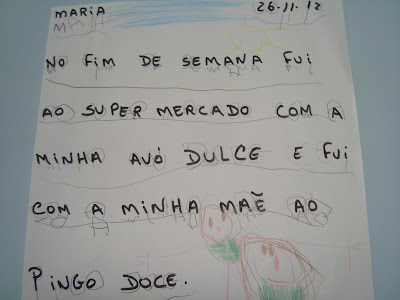 MARIA 26.11.12
MARIA
NO FIM DE SEMANA FUI
AO SUPER MERCADO COM A
MINHA AVÓ DULCE E FUI
COM A MINHA MAẼ AO
PINGO DOCE.